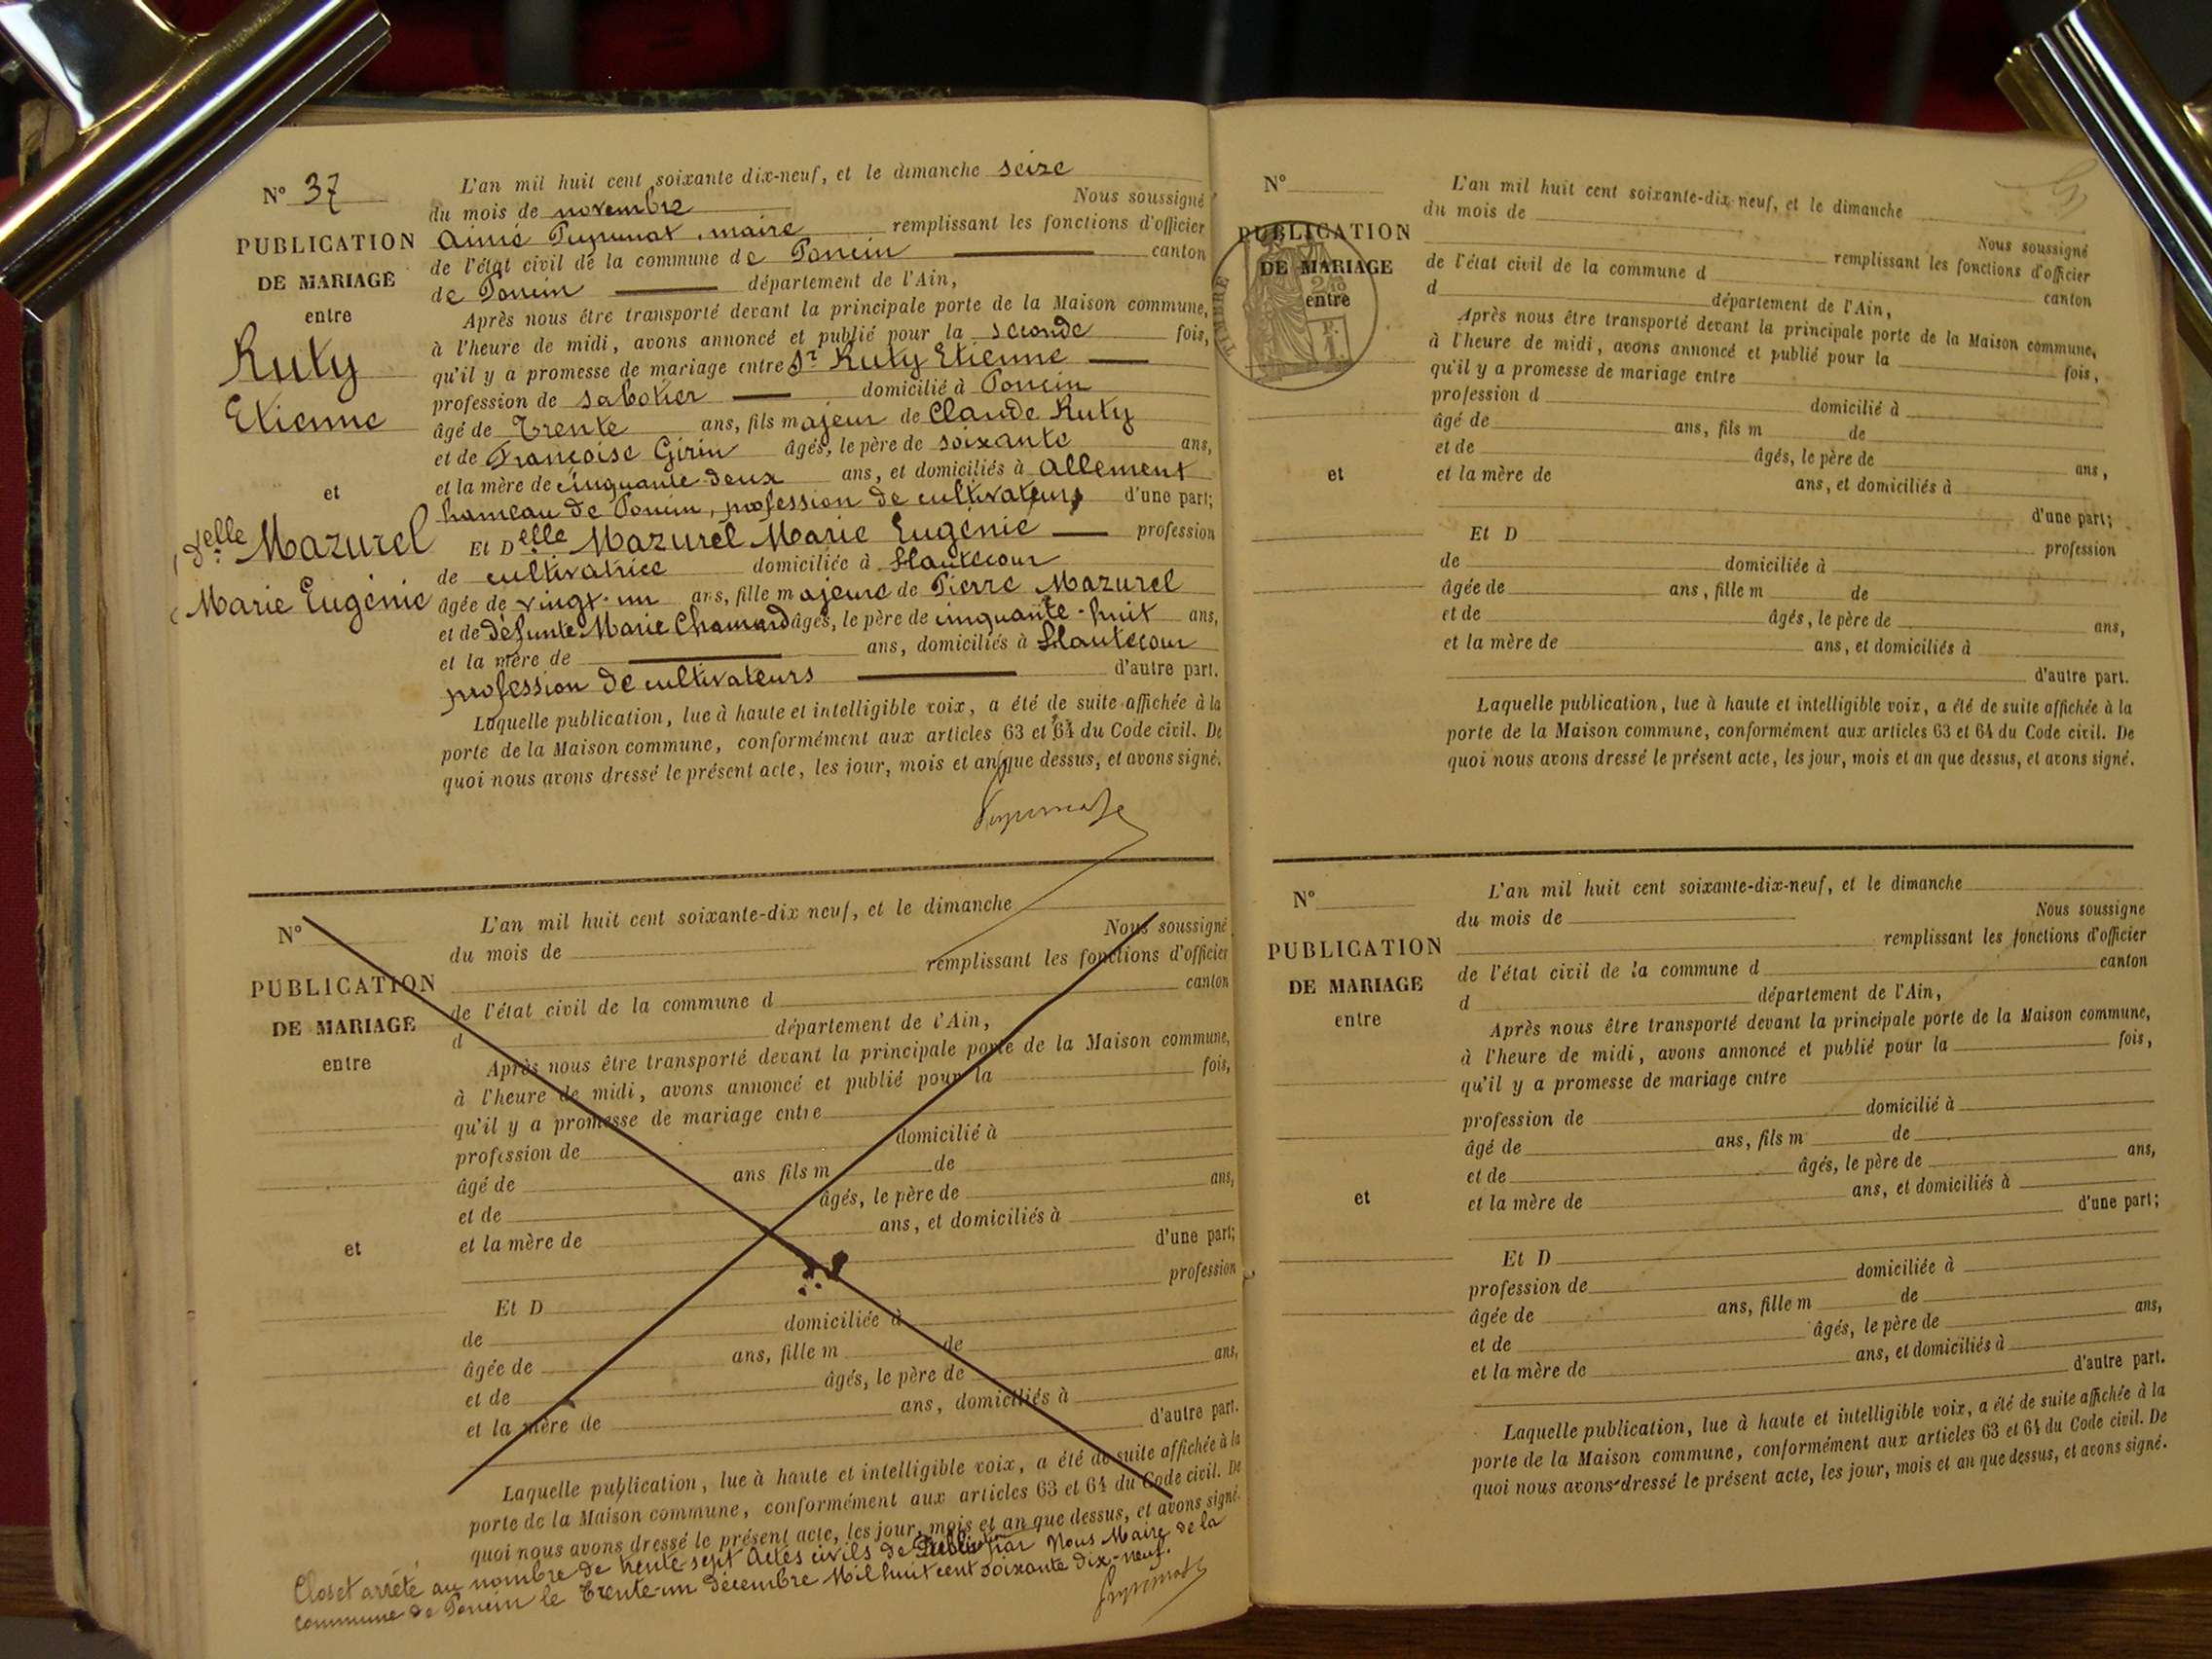 N° 37
PUBLICATION
DE MARIAGE
entre
Ruty
Etienne
et
delle Mazurel
Marie Eugénie
L'an mil huit cent soixante dix-neuf, et le dimanche seize
du mois de novembre Nous soussigné
Aimé maire remplissant les fonctions d'officier
de l'état civil de la commune de Poncin canton
de Poncin département de l'Ain,
Après nous être transporté devant la principale porte de la Maison commune,
à l'heure de midi, avons annoncé et publié pour la seconde fois,
qu'il y a promesse de mariage entre Sr Ruty Etienne
profession de sabotier domicilié à Poncin
âgé de Trente ans, fils majeur de Claude Ruty
et de Françoise Girin âgés, le père de soixante ans,
et la mère de cinquante-deux ans, et domiciliés à Allement
hameau de Poncin, profession de cultivateurs d'une part;
Et Delle Mazurel Marie Eugénie profession
de cultivatrice domiciliée à Hautecour
âgée de vingt-un ans, fille majeure de Pierre Mazurel
et de défunte Marie âgés, le père de cinquante-huit ans,
et la mère de ans, domiciliés à Hautecour
profession de cultivateurs d'autre part.
Laquelle publication, lue à haute et intelligible voix, a été de suite affichée à la
porte de la Maison commune, conformément aux articles 63 et 64 du Code civil. De
quoi nous avons dressé le présent acte, les jour, mois et an que dessus, et avons signé.
N°
PUBLICATION
DE MARIAGE
entre
et
L'an mil huit cent soixante-dix neuf, et le dimanche
du mois de Nous soussigné
remplissant les fonctions d'officier
de l'état civil de la commune d canton
d département de l'Ain,
Après nous être transporté devant la principale porte de la Maison commune,
à l'heure de midi, avons annoncé et publié pour la fois,
qu'il y a promesse de mariage entre
profession de domicilié à
âgé de ans fils m de
et de âgés, le père de ans,
et la mère de ans, et domiciliés à
d'une part;
Et D profession
de domiciliée à
âgée de ans, fille m de
et de âgés, le père de ans,
et la mère de ans, domiciliés à
d'autre part.
Laquelle publication, lue à haute et intelligible voix, a été de suite affichée à la
porte de la Maison commune, conformément aux articles 63 et 64 du Code civil. De
quoi nous avons dressé le présent acte, les jour, mois et an que dessus, et avons signé.
Clos et arrêté au nombre de trente sept Actes civils de par Nous Maire de la
commune de Poncin le Trente-un décembre Mil huit cent soixante dix-neuf.
N°
PUBLICATION
DE MARIAGE
entre
et
TIMBRE
L'an mil huit cent soixante-dix neuf, et le dimanche
du mois de
Nous soussigné
remplissant les fonctions d'officier
de l'état civil de la commune d canton
d département de l'Ain,
Après nous être transporté devant la principale porte de la Maison commune,
à l'heure de midi, avons annoncé et publié pour la fois,
qu'il y a promesse de mariage entre
profession d domicilié à
âgé de ans, fils m de
et de âgés, le père de ans,
et la mère de ans, et domiciliés à
d'une part;
Et D profession
de domiciliée à
âgée de ans, fille m de
et de âgés, le père de ans,
et la mère de ans, et domiciliés à
d'autre part.
Laquelle publication, lue à haute et intelligible voix, a été de suite affichée à la
porte de la Maison commune, conformément aux articles 63 et 64 du Code civil. De
quoi nous avons dressé le présent acte, les jour, mois et an que dessus, et avons signé.
N°
PUBLICATION
DE MARIAGE
entre
et
L'an mil huit cent soixante-dix-neuf, et le dimanche
du mois de Nous soussigne
remplissant les fonctions d'officier
de l'état civil de la commune d canton
d département de l'Ain,
Après nous être transporté devant la principale porte de la Maison commune,
à l'heure de midi, avons annoncé et publié pour la fois,
qu'il y a promesse de mariage entre
profession de domicilié à
âgé de ans, fils m de
et de âgés, le père de ans,
et la mère de ans, et domiciliés à
d'une part;
Et D
profession de domiciliée à
âgée de ans, fille m de
et de âgés, le père de ans,
et la mère de ans, et domiciliés à
d'autre part.
Laquelle publication, lue à haute et intelligible voix, a été de suite affichée à la
porte de la Maison commune, conformément aux articles 63 et 64 du Code civil. De
quoi nous avons dressé le présent acte, les jour, mois et an que dessus, et avons signé.